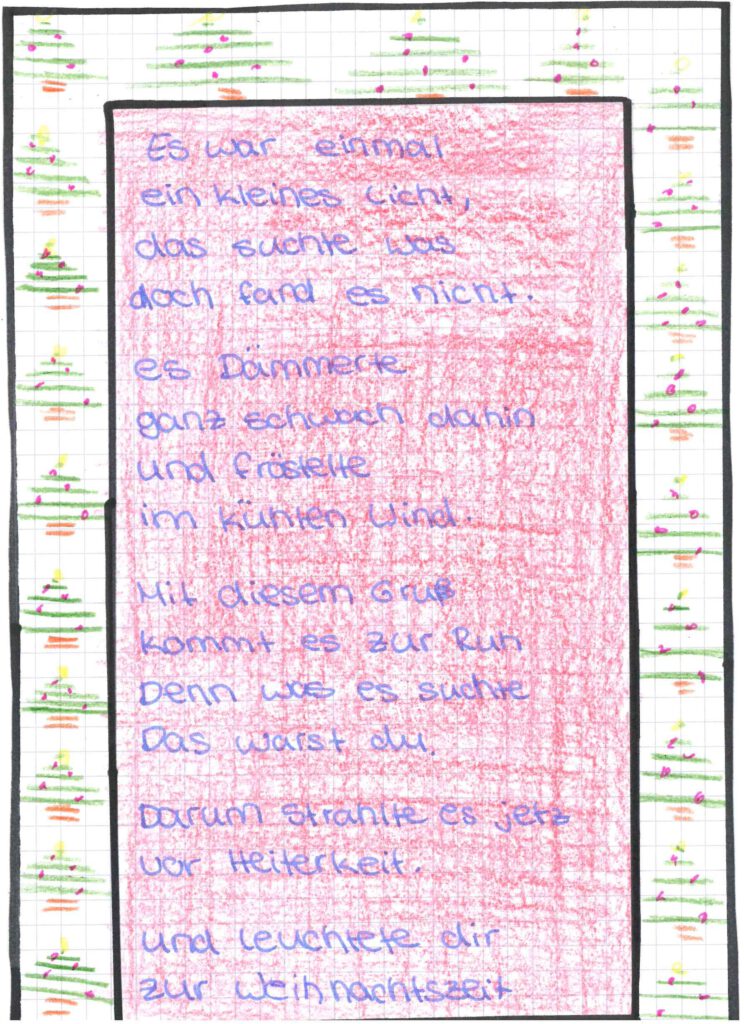 Es war einmal
ein kleines Licht,
das suchte was
doch fand es nicht.
es Dämmerte
ganz schwach dahin
und fröstelte
im kühlen Wind.
Mit diesem Gruß
kommt es zur Ruh
Denn was es suchte
Das warst du.
Darum strahlte es jetz
vor Heiterkeit.
und leuchtete dir
zur Weihnachtszeit